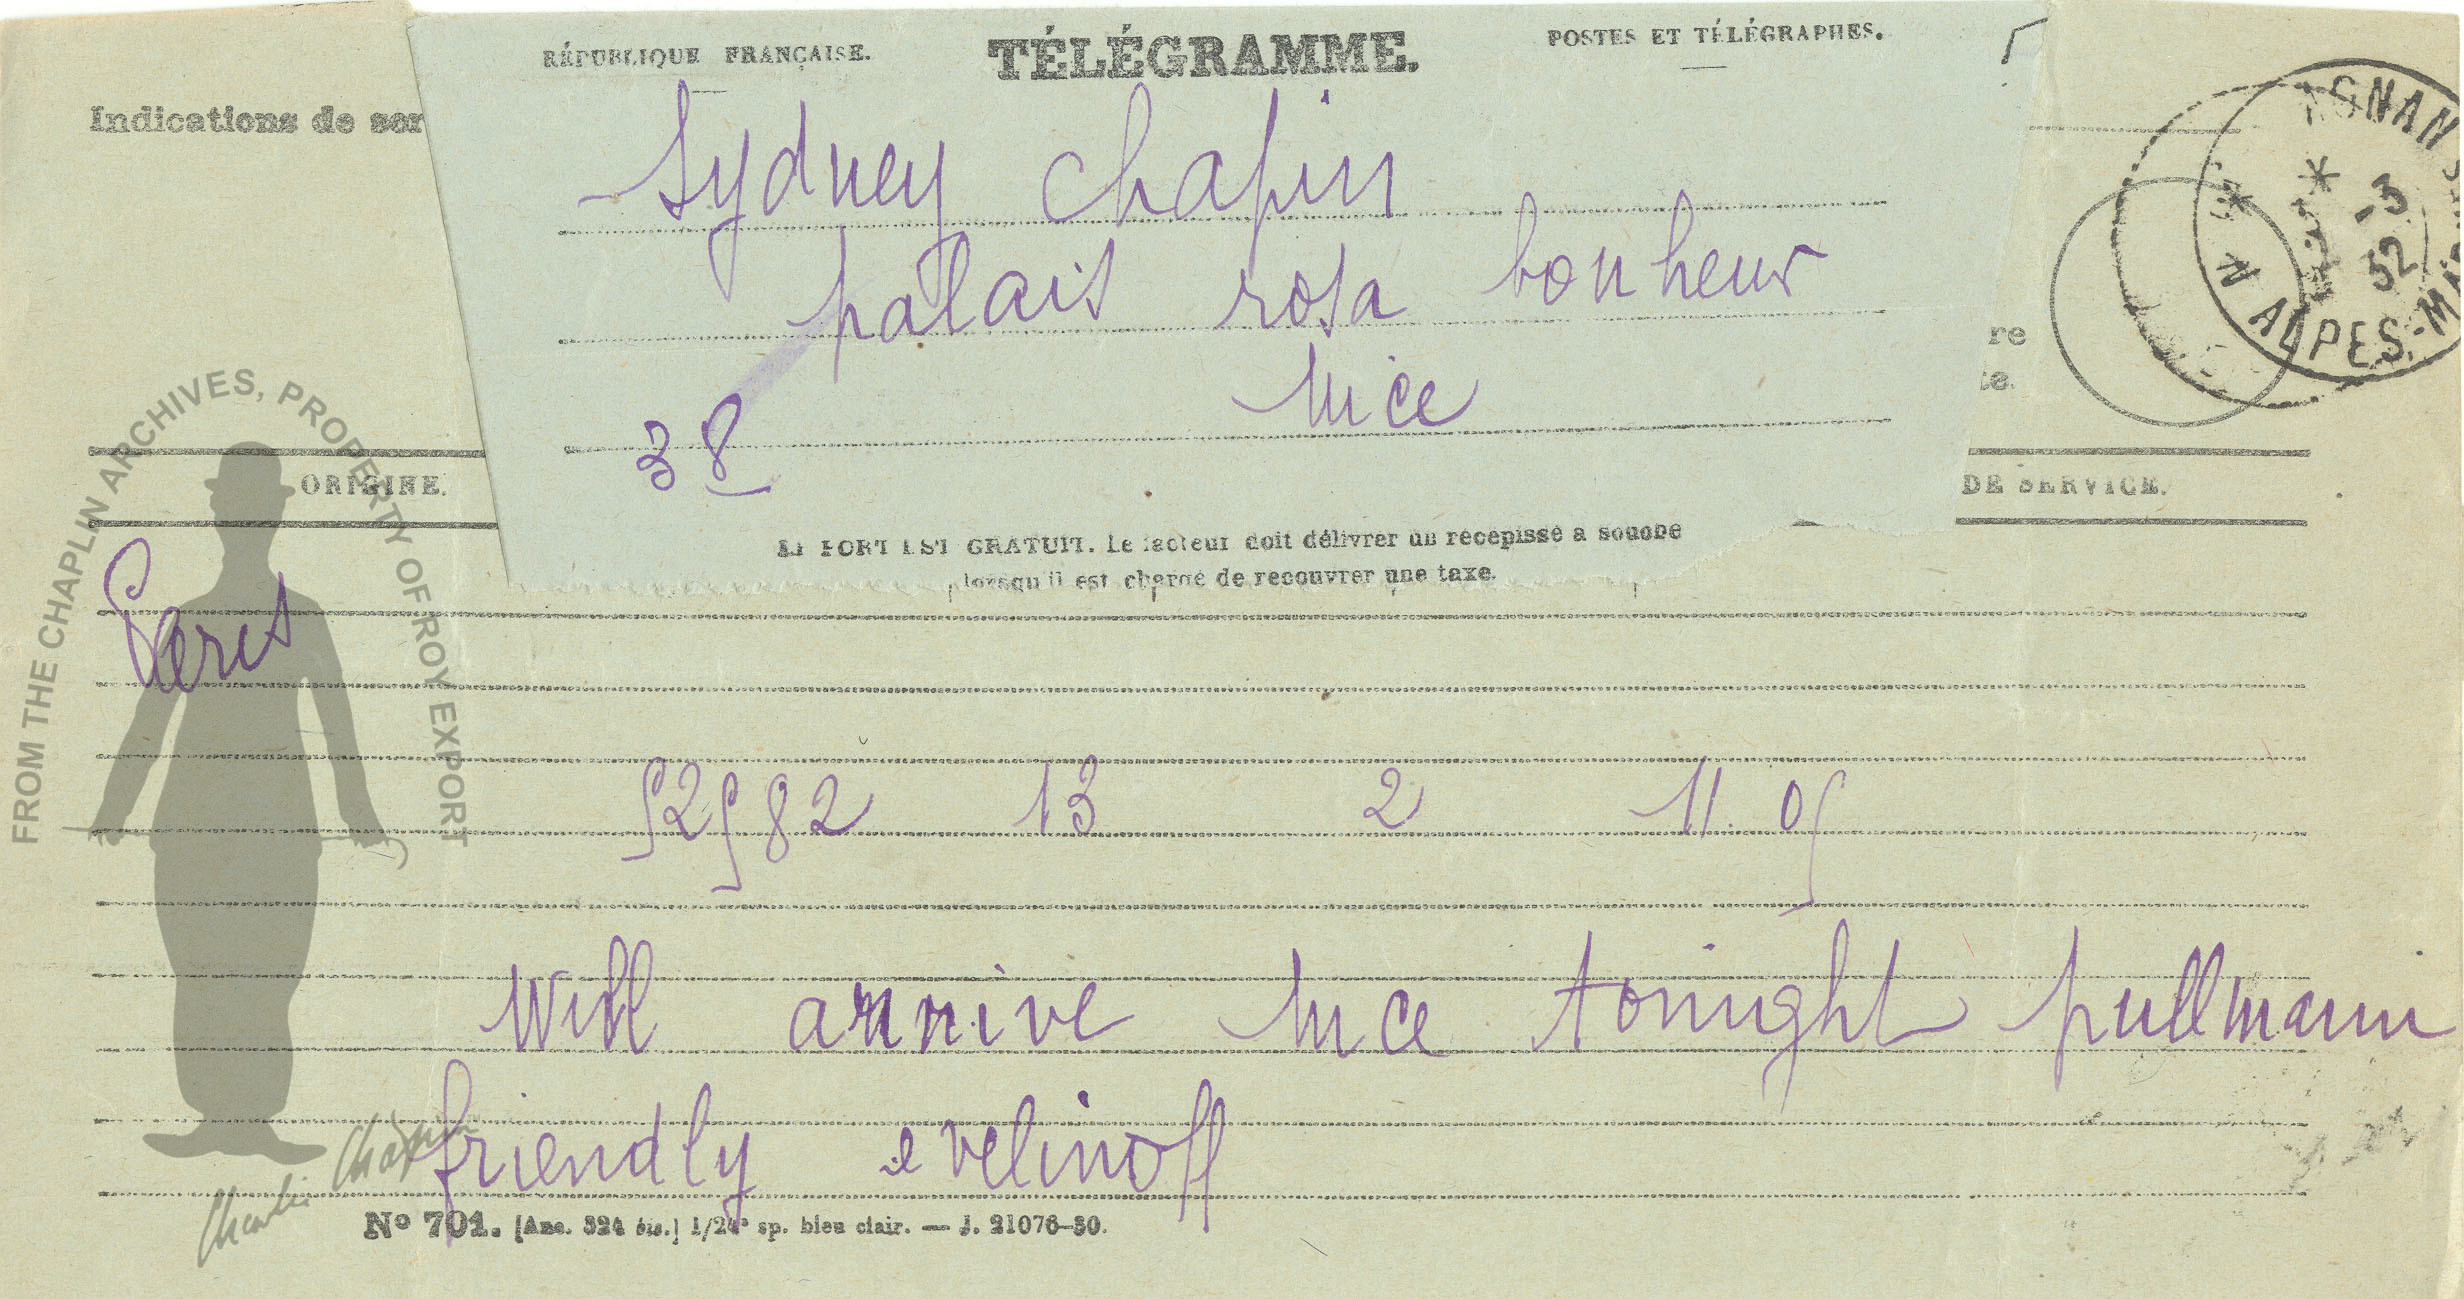 RÉPUBLIQUE FRANÇAISE. TÉLÉGRAMME. POSTES ET TÉLÉGRAPHES.
Indications de ser
Sydney Chapin
palais rosa bonheur
Nice
38
re
te.
ORIGINE.
DE SERVICE.
LE PORT EST GRATUIT. Le facteur doit délivrer un récépissé à souche
lorsqu'il est chargé de recouvrer une taxe.
Paris
52582 13 2 11.05
Will arrive Nice tonight pullmann
friendly evelinoff
No 701. [Ane. 524 bis.] 1/24e sp. bleu clair. — J. 21076-30.
-3
32
ALPES-M
FROM THE CHAPLIN ARCHIVES, PROPERTY OF ROY EXPORT
Charlie Chaplin